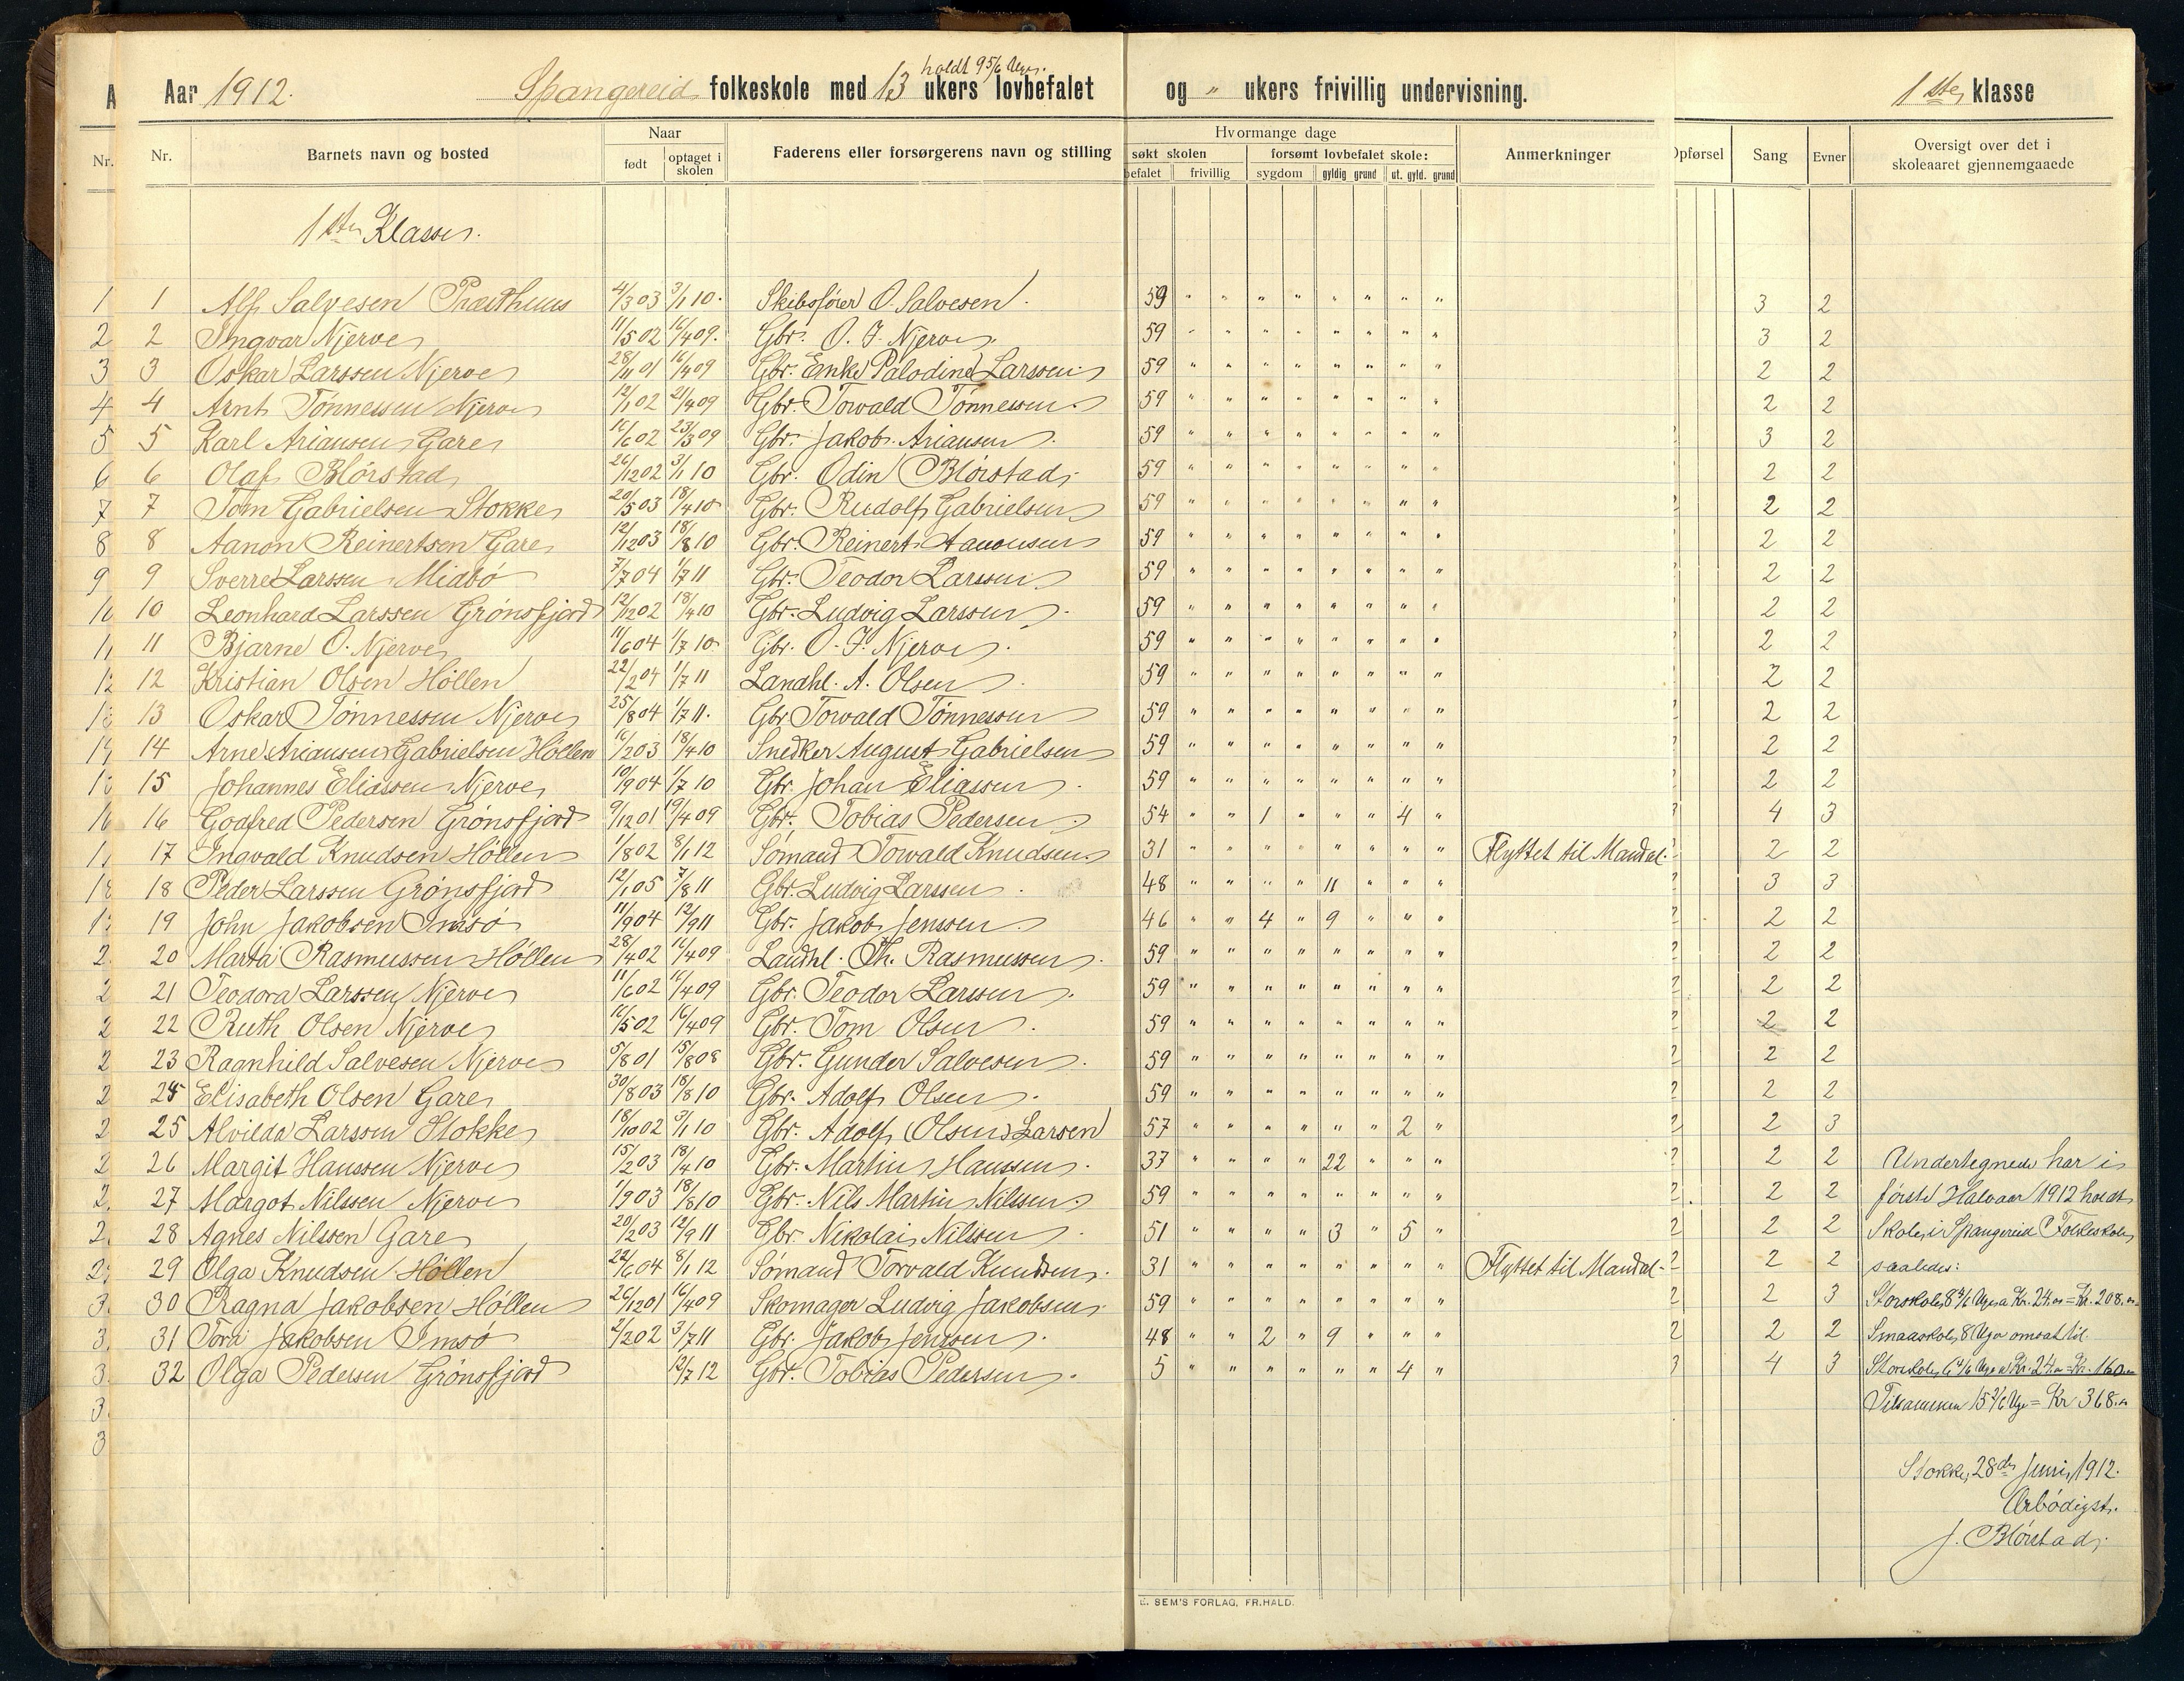 holdt 9 5/6 Uger.
A Aar 1912. Spangereid folkeskole med 13 ukers lovbefalet og " ukers frivillig undervisning. 1ste klasse
Nr. Nr. Barnets navn og bosted Naar født optaget i skolen Faderens eller forsørgerens navn og stilling Hvormange dage søkt skolen befalet frivillig forsømt lovbefalet skole: sygdom gyldig grund ut. gyld. grund Anmerkninger Opførsel Sang Evner Oversigt over det i skoleaaret gjennemgaaede
1ste Klasse.
1 1 Alf Salvesen Præsthuus 4/3 03 3/1 10. Skibsfører O. Salvesen. 59 " " " " " " " " 3 2
2 2 Ingvar Njerve 11/5 02 16/4 09. Gbr. O. J. Njerve. 59 " " " " " " " " 3 2
3 3 Oskar Larssen Njerve 28/11 01 16/4 09 Gbr. Enke Palodine Larssen. 59 " " " " " " " " 2 2
4 4 Arnt Tønnessen Njerve 12/1 02 21/4 09 Gbr. Torvald Tønnessen. 59 " " " " " " " " 2 2
5 5 Karl Ariansen Gare 10/6 02 23/3 09 Gbr. Jakob Ariansen. 59 " " " " " " " " 3 2
6 6 Olaf Blørstad 26/12 02 3/1 10 Gbr. Odin Blørstad. 59 " " " " " " " " 2 2
7 7 Tom Gabrielsen Stokke 20/5 03 18/4 10 Gbr. Rudolf Gabrielsen 59 " " " " " " " " 2 2
8 8 Aanon Reinertsen Gare 12/12 03 18/8 10 Gbr. Reinert Aanonsen 59 " " " " " " " " 2 2
9 9 Sverre Larssen Midbø 7/7 04 1/7 11 Gbr. Teodor Larssen 59 " " " " " " " " 2 2
10 10 Leonhard Larssen Grønsfjord 12/12 02 18/4 10 Gbr. Ludvig Larssen. 59 " " " " " " " " 2 2
11 Bjarne O. Njerve 11/6 04 1/7 10 Gbr. O. J. Njerve. 59 " " " " " " " " 2 2
12 12 Kristian Olsen Høllen 22/2 04 1/7 11 Landhl. A. Olsen. 59 " " " " " " " " 2 2
13 Oskar Tønnessen Njerve 25/8 04 1/7 11. Gbr Torvald Tønnessen 59 " " " " " " " " 2 2
14 14 Arne Ariansen Gabrielsen Høllen 16/2 03 18/4 10 Snedker August Gabrielsen 59 " " " " " " " " 2 2
15 Johannes Eliassen Njerve 10/9 04 1/7 10 Gbr. Johan Eliassen. 59 " " " " " " " " 2 2
16 16 Godfred Pedersen Grønsfjord 9/12 01 19/4 09 Gbr. Tobias Pedersen. 54 " " 1 " " " 4 " 4 3
17 Ingvald Knudsen Høllen 1/8 02 8/1 12 Sømand Torvald Knudsen. 31 " " " " " " " " Flyttet til Mandal. 2 2
18 18 Peder Larssen Grønsfjord 12/1 05 7/8 11 Gbr. Ludvig Larssen. 48 " " " " 11 " " " 3 3
19 John Jakobsen Imsø 11/9 04 12/9 11 Gbr. Jakob Jenssen. 46 " " 4 " 9 " " " 2 2
2 20 Marta Rasmussen Høllen 28/4 02 16/4 09 Landhl. Th. Rasmussen. 59 " " " " " " " " 2 2
2 21 Teodora Larssen Njerve 11/6 02 16/4 09 Gbr. Teodor Larssen. 59 " " " " " " " " 2 2 2
2 22 Ruth Olsen Njerve 16/5 02 16/4 09 Gbr. Tom Olsen. 59 " " " " " " " " 2 2 2
2 23 Ragnhild Salvesen Njerve 5/8 01 15/8 08 Gbr. Gunder Salvesen. 59 " " " " " " " " 2 2 2
2 24 Elisabeth Olsen Gare 30/8 03 18/8 10 Gbr. Adolf Olsen. 59 " " " " " " " " 2 2 2
2 25 Alvilda Larssen Stokke 18/10 02 3/1 10 Gbr. Adolf (Olsen) Larsen 57 " " " " " " 2 " 2 2 3
2 26 Margit Hanssen Njerve 15/2 03 18/4 10 Gbr. Martin Hanssen. 37 " " " " 22 " " " 2 2 2 Undertegnede har i
2 27 Margot Nilssen Njerve 1/9 03 18/8 10 Gbr. Nils Martin Nilssen. 59 " " " " " " " " 2 2 2 første Halvaar 1912 holdt
2 28 Agnes Nilssen Gare 20/2 03 12/9 11 Gbr. Nikolai Nilssen. 51 " " " " 3 " 5 " 2 2 2 Skole i Spangereid Folkeskole
2 29 Olga Knudsen Høllen 22/6 04 8/1 12 Sømand Torvald Knudsen. 31 " " " " " " " " Flyttet til Mandal. 2 2 2 saaledes:
3 30 Ragna Jakobsen Høllen 26/12 01 16/4 09 Skomager Ludvig Jakobsen. 59 " " " " " " " " 2 2 3 Storskole, 8 4/6 Uge a Kr. 24.00 = Kr. 208.00
3 31 Tora Jakobsen Imsø 2/2 02 3/7 11 Gbr. Jakob Jenssen. 48 " " 2 " 9 " " " 2 2 2 Smaaskole, 8 Uger omsat til
3 32 Olga Pedersen Grønsfjord 12/7 12 Gbr. Tobias Pedersen. 5 " " " " " " 4 " 3 4 3 Storskole, 6 4/6 Uge a Kr. 24.00 = Kr. 160.00
3 Tilsammen 15 2/6 Uge = Kr 368.00
3
Stokke, 28de Juni, 1912.
Ærbødigst.
J. Blørstad.
E. SEM'S FORLAG, FR.HALD.